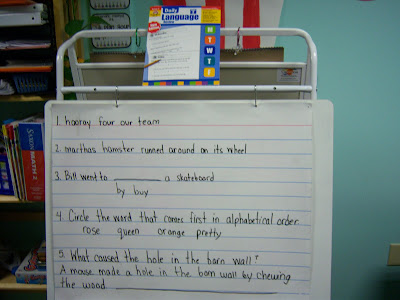 Daily
Language
Review
M
T
W
T
F
SAXON
MATH 2
1. hooray four our team
2. marthas hamster runned around on its wheel
3. Bill went to ________ a skateboard
by buy
4. Circle the word that comes first in alphabetical order
rose queen orange pretty
5. What caused the hole in the barn wall?
A mouse made a hole in the barn wall by chewing
the wood